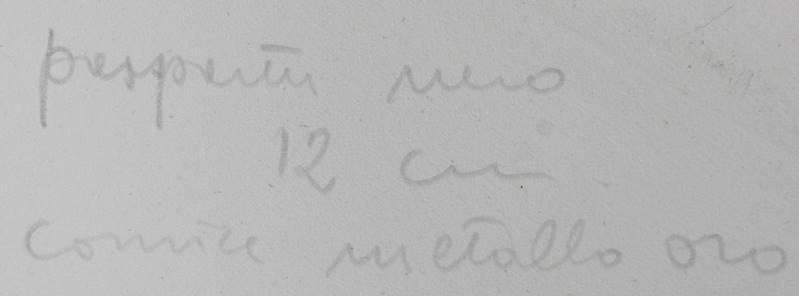 nero
12 cm
cornice metallo oro